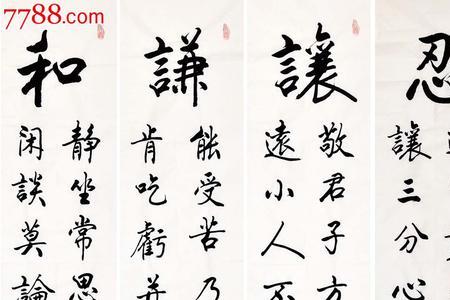 7788.com
忍
讓三分心
讓
敬君子方
遠小人不
謙
能受苦乃
肯吃虧并
和
靜坐常思
闲談莫論